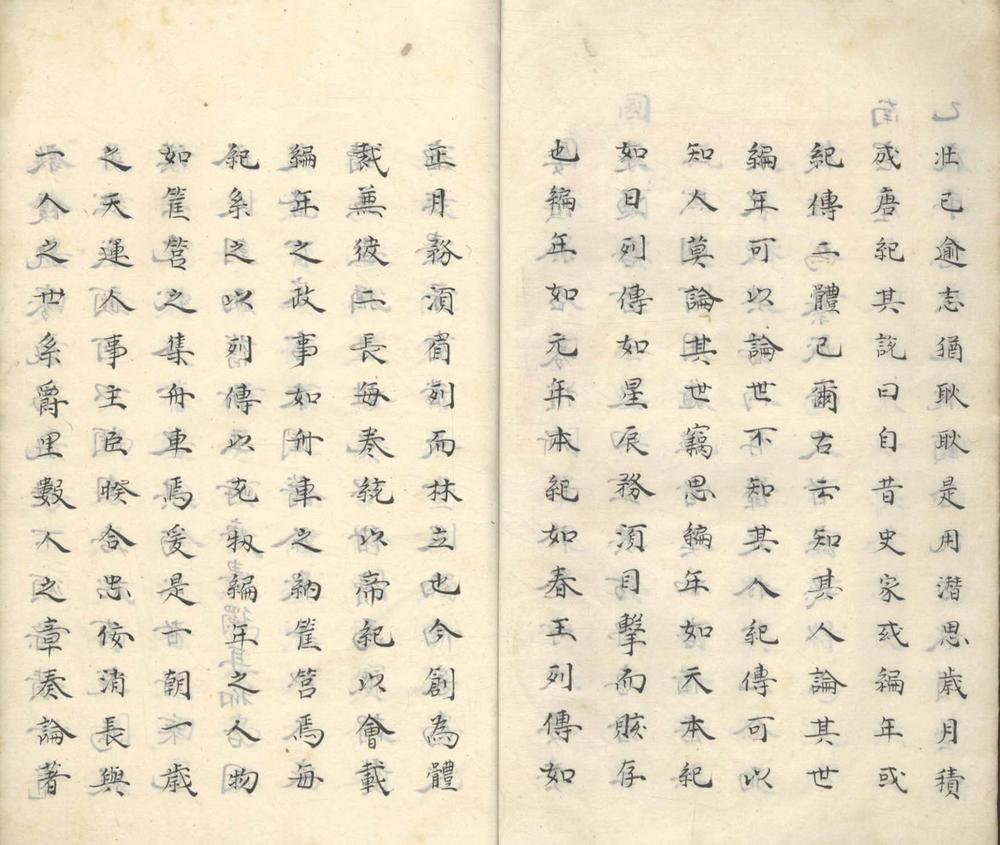 壮已逾志猶耿耿是用潜思歲月積
成唐紀其說曰自昔史家或編年或
紀傳二體已爾古云知其人論其世
編年可以論世不知其人紀傳可以
知人莫論其世竊思編年如天本紀
如日列傳如星辰務須目擊而賅存
也編年如元年本紀如春王列傳如
正月務須眉列而林立也今創為體
裁兼彼二長每卷統以帝紀以會載
編年之政事如舟車之納筐筥焉每
紀系之以列傳以充牣編年之人物
如筐筥之集舟車焉爰是一朝一歲
之天運人事主臣暌合忠佞消長與
一人之世系爵里數人之章奏論著